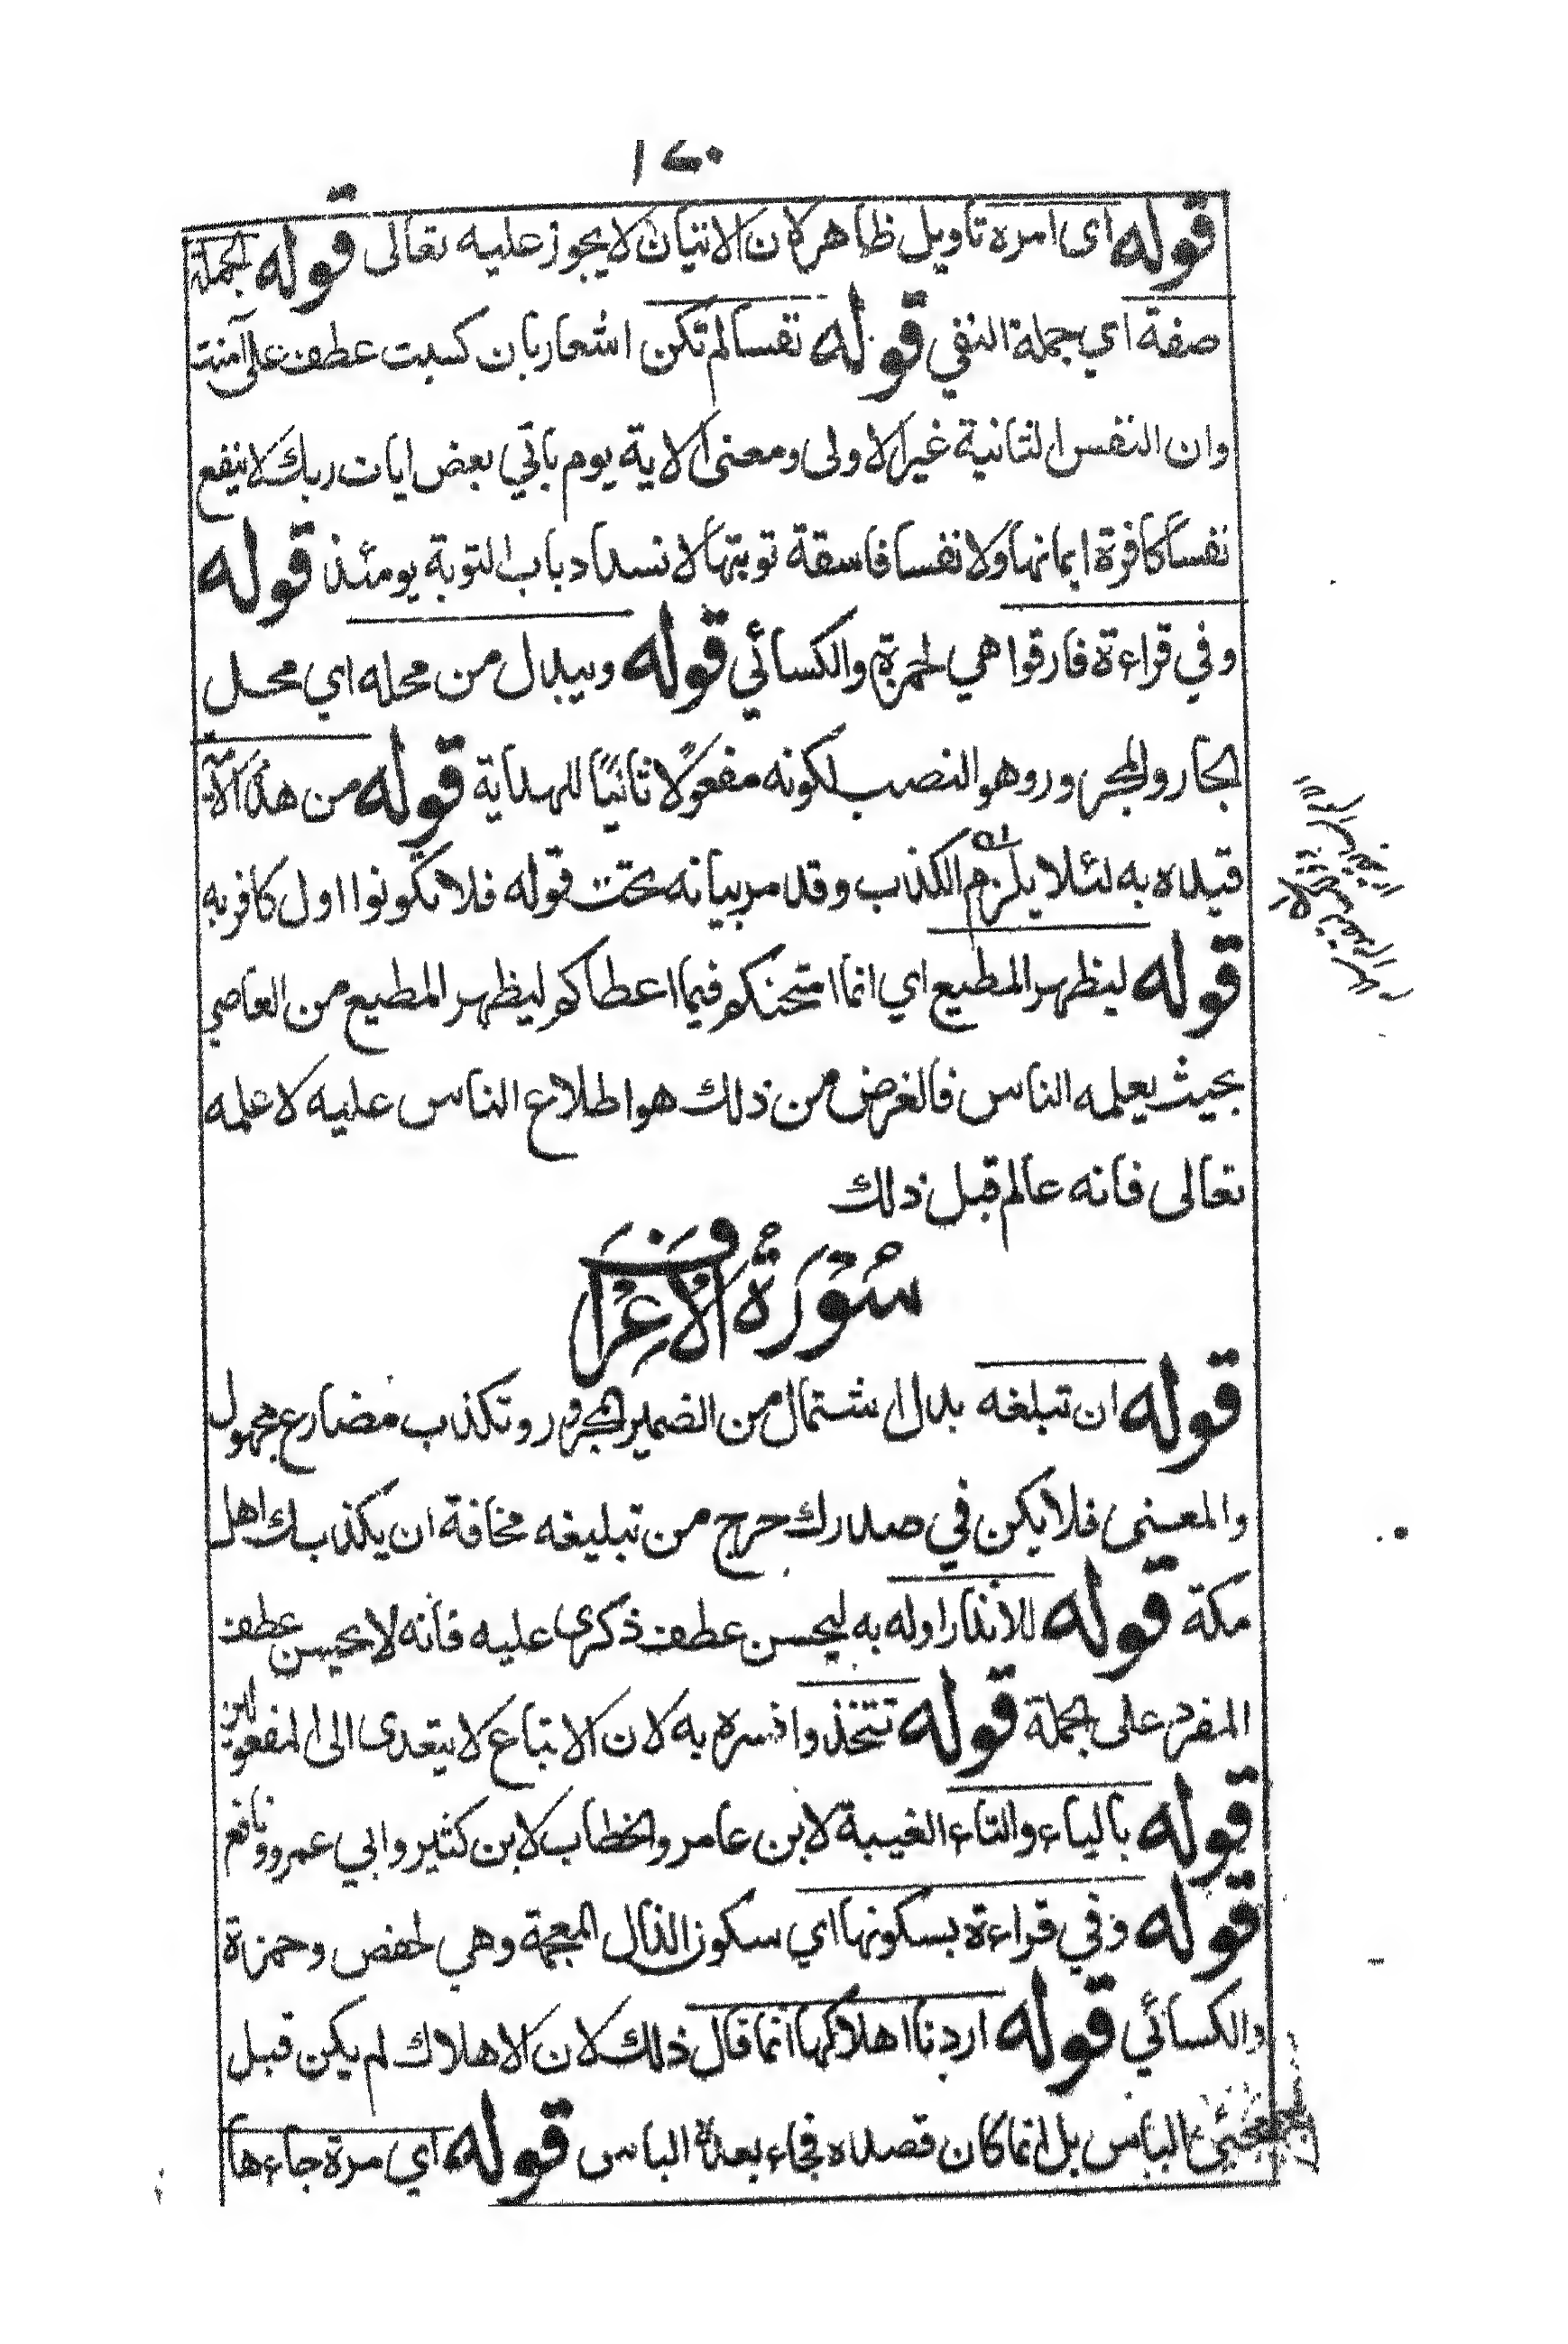 ١٤٠
قوله اى امره تاويل ظاهر لان الاتيان لا يجوز عليه تعالى قوله الجملة
صفة اي جملة النفي قوله نفسا لم تكن اشعار بان كسبت عطف على آمنت
وان النفس الثانية غير الاولى ومعنى الاية يوم ياتي بعض ايات ربك لا ينفع
نفسا كافرة ايمانها ولا نفسا فاسقة توبتها لانسداد باب التوبة يومئذ قوله
وفي قراءة فارقوا هي لحمزة والكسائي قوله ويبدل من محله اي محل
الجار والمجرور وهو النصب لكونه مفعولا ثانيًا للهداية قوله من هذه الامة
قيده به لئلا يلزم الكذب وقد مر بيانه تحت قوله فلا تكونوا اول كافر به
قوله ليظهر المطيع اي انما امتحنكم فيما اعطاكم ليظهر المطيع من العاصي
بحيث يعلمه الناس فالغرض من ذلك هو اطلاع الناس عليه لا علمه
تعالى فانه عالم قبل ذلك
سُوْرَةُ الْاَعْرَافِ
قوله ان تبلغه بدل اشتمال من الضمير المجرور وتكذب مضارع مجهول
والمعنى فلا يكن في صدرك حرج من تبليغه مخافة ان يكذبك اهل
مكة قوله للانذار اوله به ليحسن عطف ذكرى عليه فانه لا يحسن عطف
المفرد على الجملة قوله تتخذوا فسره به لان الاتباع لا يتعدى الى المفعولين
قوله بالياء والتاء الغيبة لابن عامر والخطاب لابن كثير وابي عمرو ونافع
قوله وفي قراءة بسكونها اي سكون الذال المعجمة وهي لحفص وحمزة
والكسائي قوله اردنا اهلاكها انما قال ذلك لان الاهلاك لم يكن قبل
مجيئ الباس بل انما كان قصده فجاء بعده الباس قوله اي مرة جاءها